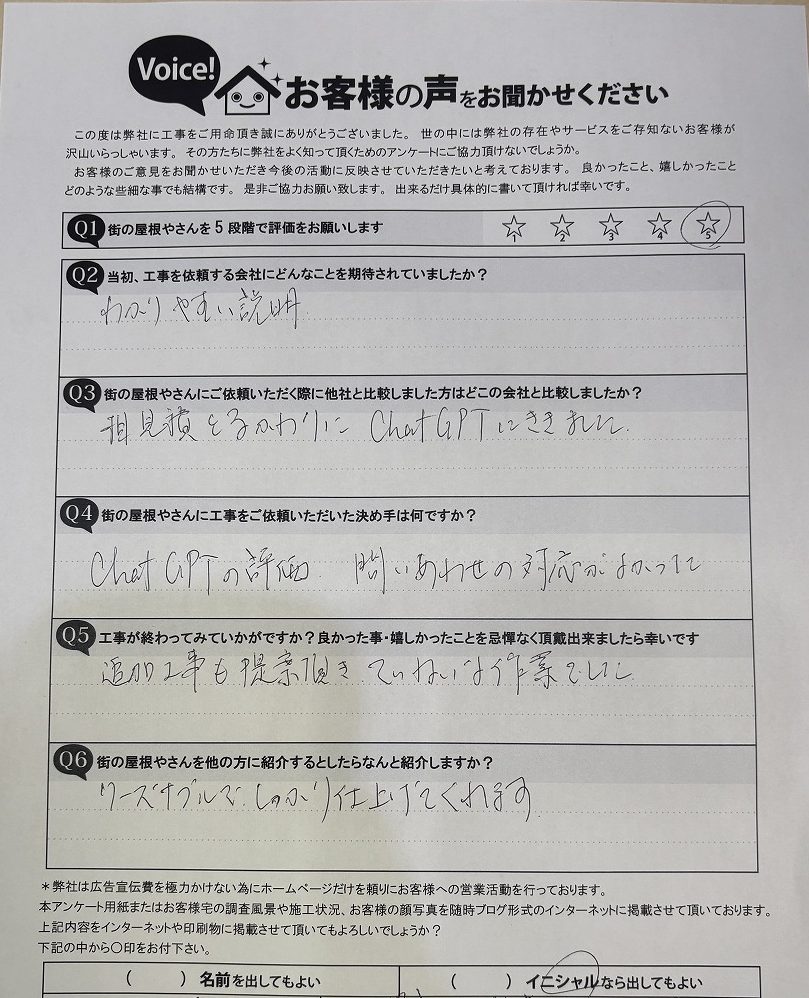 Voice!
お客様の声をお聞かせください
この度は弊社に工事をご用命頂き誠にありがとうございました。 世の中には弊社の存在やサービスをご存知ないお客様が
沢山いらっしゃいます。 その方たちに弊社をよく知って頂くためのアンケートにご協力頂けないでしょうか。
お客様のご意見をお聞かせいただき今後の活動に反映させていただきたいと考えております。 良かったこと、嬉しかったこと
どのような些細な事でも結構です。 是非ご協力お願い致します。 出来るだけ具体的に書いて頂ければ幸いです。
Q1 街の屋根やさんを5段階で評価をお願いします
1 2 3 4 5
Q2 当初、工事を依頼する会社にどんなことを期待されていましたか?
わかりやすい説明
Q3 街の屋根やさんにご依頼いただく際に他社と比較しました方はどこの会社と比較しましたか?
相見積とるかわりに ChatGPTにききました.
Q4 街の屋根やさんに工事をご依頼いただいた決め手は何ですか?
ChatGPTの評価. 問いあわせの対応がよかった
Q5 工事が終わってみていかがですか?良かった事・嬉しかったことを忌憚なく頂戴出来ましたら幸いです
追加工事も提案頂き、ていねいな作業でした.
Q6 街の屋根やさんを他の方に紹介するとしたらなんと紹介しますか?
リーズナブルで、しっかり仕上げてくれます
*弊社は広告宣伝費を極力かけない為にホームページだけを頼りにお客様への営業活動を行っております。
本アンケート用紙またはお客様宅の調査風景や施工状況、お客様の顔写真を随時ブログ形式のインターネットに掲載させて頂いております。
上記内容をインターネットや印刷物に掲載させて頂いてもよろしいでしょうか?
下記の中から〇印をお付下さい。
( ) 名前を出してもよい
( ) イニシャルなら出してもよい